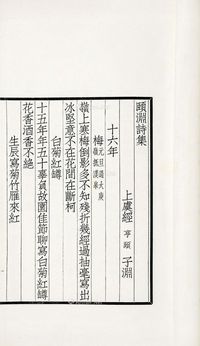 頤淵詩集
上虞經 亨頤 子淵
十六年
梅 元旦 大庾
嶺抵漢
嶺上寒梅倒影多不知殘折幾經過抽毫寫出
冰堅意不在花間在斷柯
白菊紅罇
十五年年五十辜負故園佳節聊寫白菊紅罇
花香酒香不絕
生辰寫菊竹雁來紅